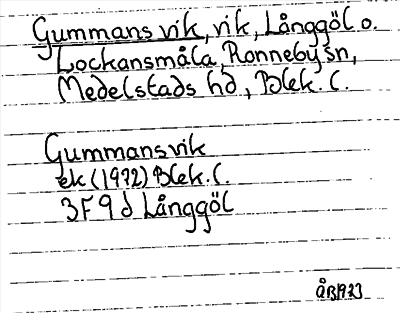 Gummans vik, vik, Långgöl o.
Lockansmåla, Ronneby sn,
Medelstads hd, Blek. l.
Gummansvik
ek (1972) Blek. l.
3F 9 d Långgöl
ÅB1973